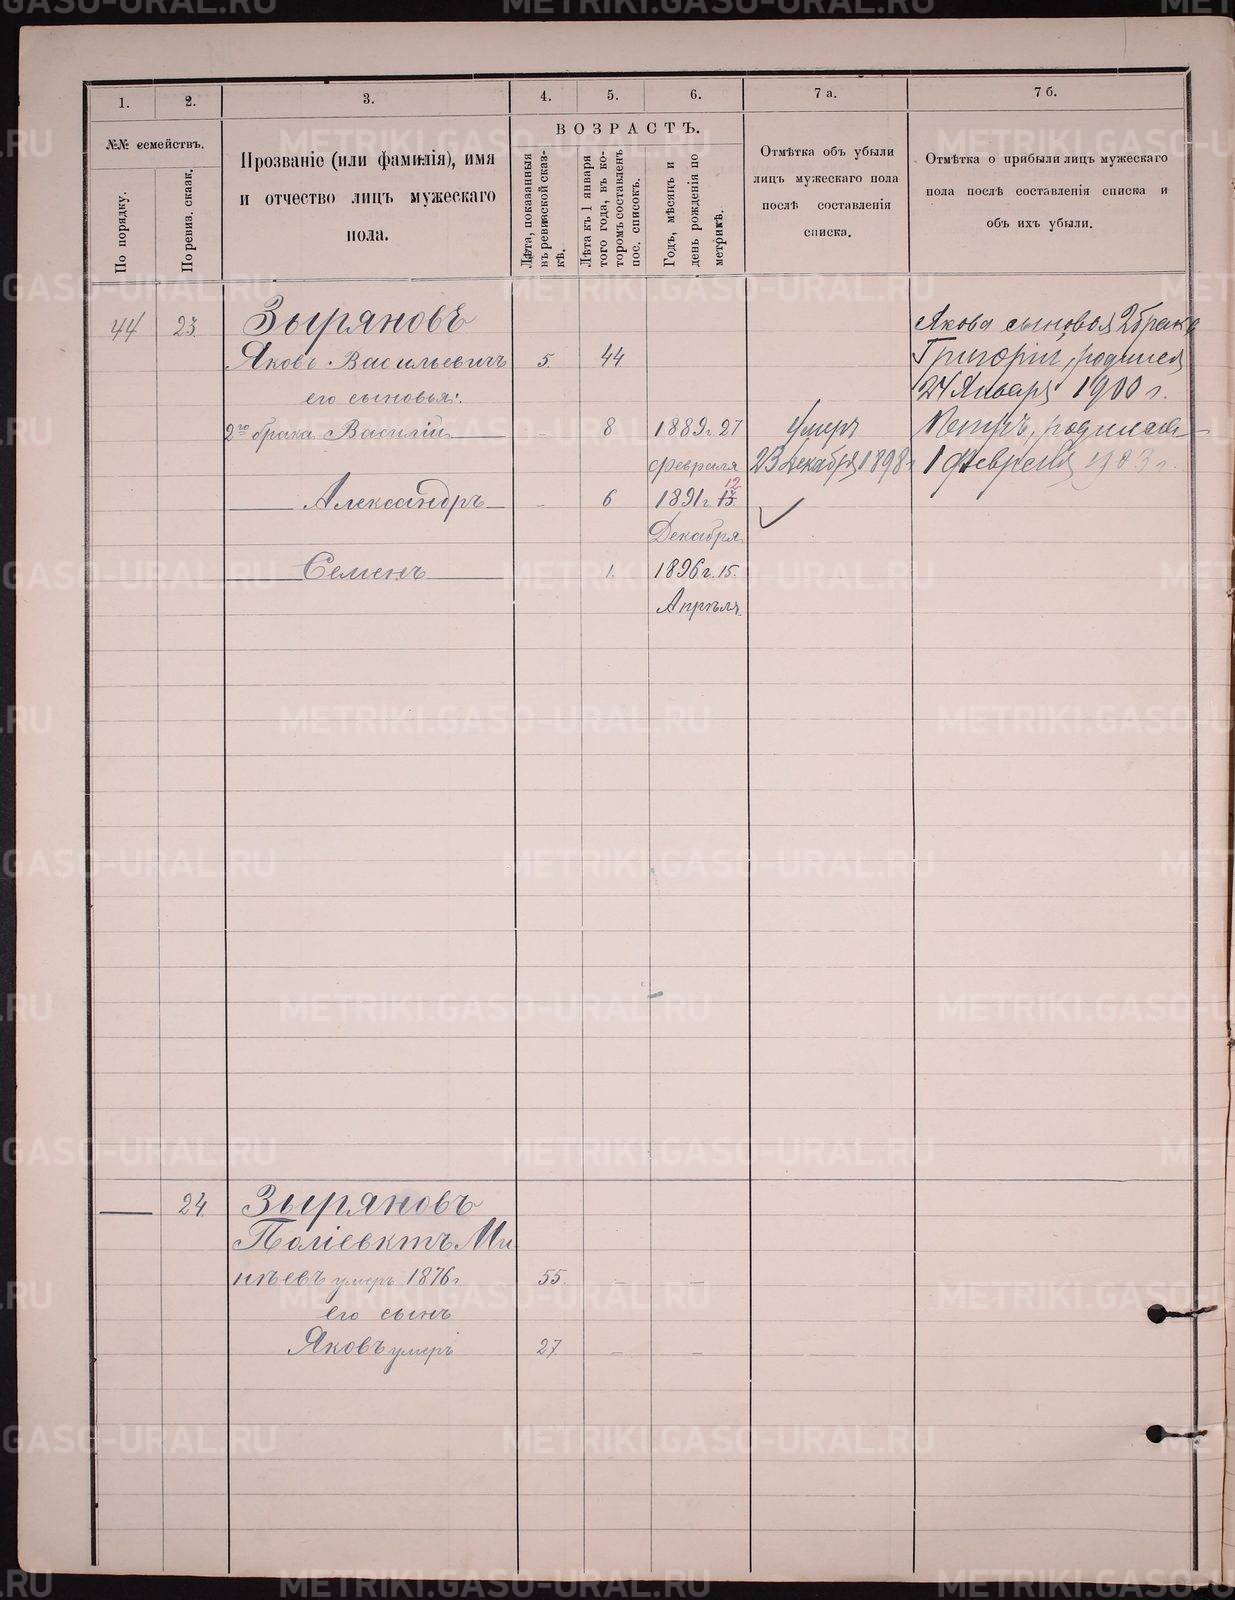 1. 2. 3. 4. 5. 6. 7 а. 7 б.
№№ семействъ.
По порядку.
По ревиз. сказк.
Прозваніе (или фамилія), имя
и отчество лицъ мужескаго
пола.
ВОЗРАСТЪ.
Лѣта, показанныя
въ ревизской сказ-
кѣ.
Лѣта къ 1 января
того года, въ ко-
торомъ составленъ
пос. списокъ.
Годъ, мѣсяцъ и
день рожденія по
метрикѣ.
Отмѣтка объ убыли
лицъ мужескаго пола
послѣ составленія
списка.
Отмѣтка о прибыли лицъ мужескаго
пола послѣ составленія списка и
объ ихъ убыли.
44 23. Зыряновъ
Яковъ Васильевичъ 5. 44.
его сыновья:
2го брака Василій - 8 1889 г. 27
февраля
Умеръ
23 Декабря 1898 г.
Александръ - 6 1891 г. 12
Декабря
Семенъ 1. 1896 г. 15.
Апрѣля
Якова сыновья 2 брака
Григорій, родился
24 Января 1900 г.
Петръ, родился
1 Февраля 1903 г.
24. Зыряновъ
Поліевктъ Ми
нѣевъ умеръ 1876 г. 55. - -
его сынъ
Яковъ умеръ 27 - -
METRIKI.GASO-URAL.RU